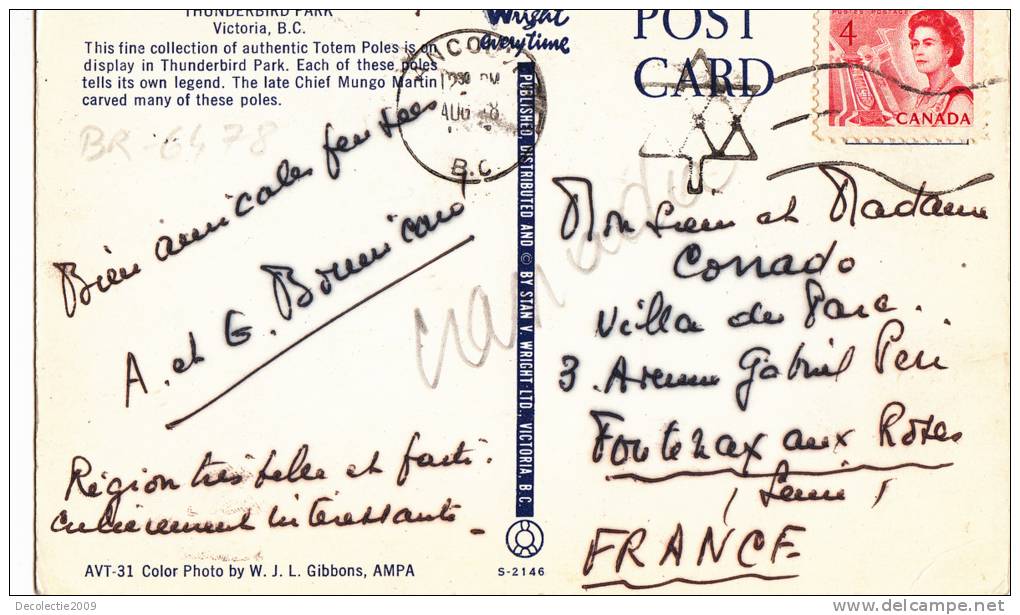 THUNDERBIRD PARK
Victoria, B.C.
This fine collection of authentic Totem Poles is on
display in Thunderbird Park. Each of these poles
tells its own legend. The late Chief Mungo Martin
carved many of these poles.
BR-6478
Bien amicales pensées
A. et G.
Région très belle et parti-
culièrement intéressante
AVT-31 Color Photo by W. J. L. Gibbons, AMPA
Wright
everytime
PUBLISHED, DISTRIBUTED AND © BY STAN V. WRIGHT LTD., VICTORIA, B.C.
S-2146
POST
CARD
VANCOUVER
PM
AUG
B.C.
POSTES POSTAGE
4
CANADA
Canada
Monsieur et Madame
Conrado
Villa du Parc
3. Avenue Gabriel Peri
Fontenay aux Roses
(Seine)
FRANCE
Decolectie2009
delcampe.net